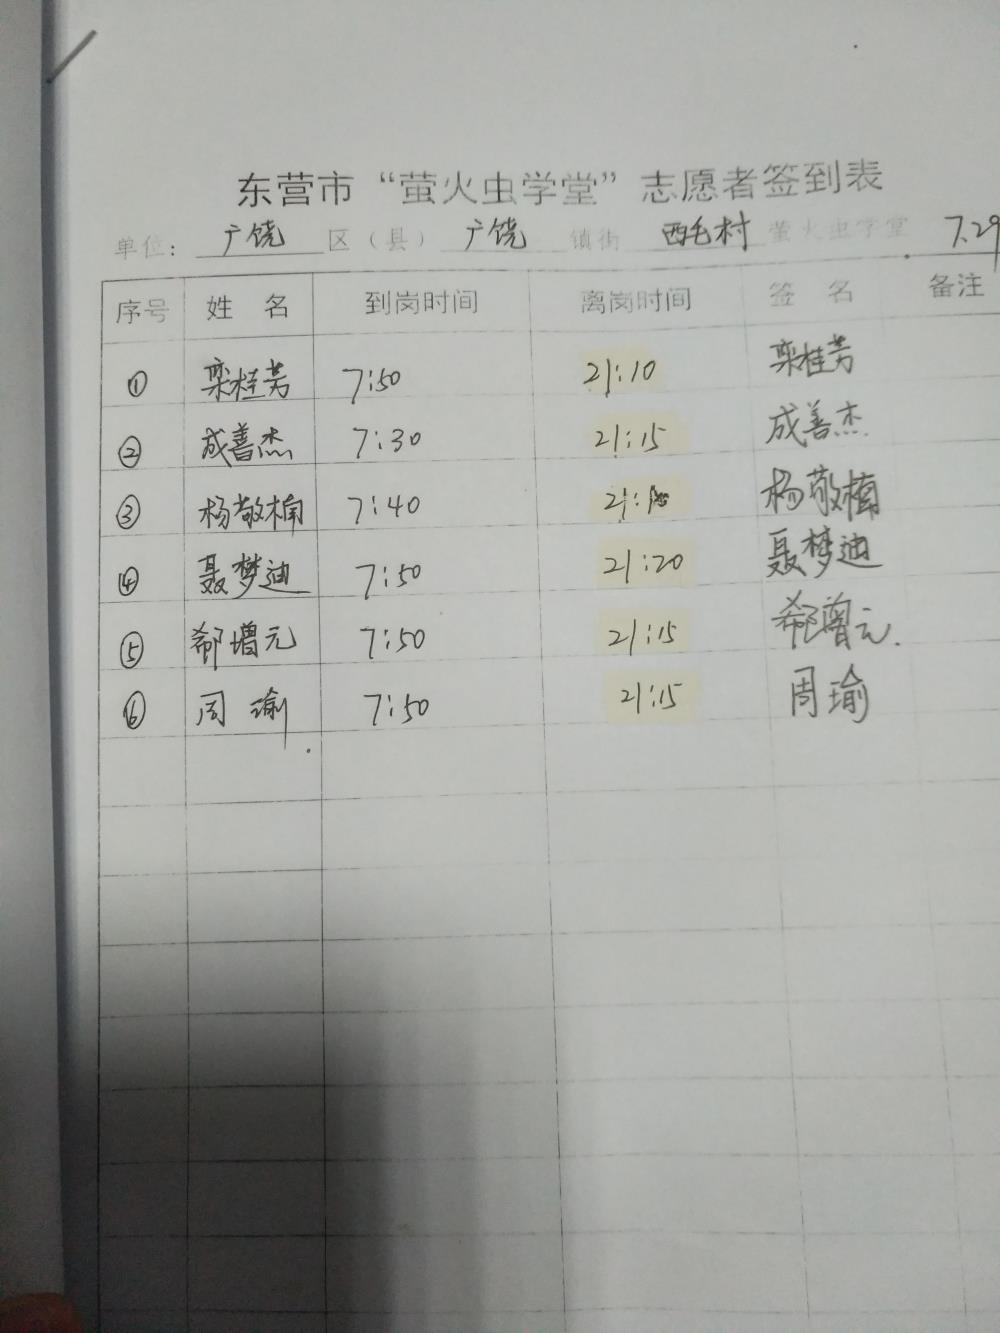 东营市“萤火虫学堂”志愿者签到表
单位: 广饶 区(县) 广饶 镇街 西毛村 萤火虫学堂 7.29
序号 姓名 到岗时间 离岗时间 签名 备注
① 栾桂芳 7:50 21:10 栾桂芳
② 成善杰 7:30 21:15 成善杰
③ 杨敬楠 7:40 杨敬楠
④ 聂梦迪 7:50 21:20 聂梦迪
⑤ 郗增元 7:50 21:15 郗增元.
⑥ 周瑜 7:50 21:15 周瑜